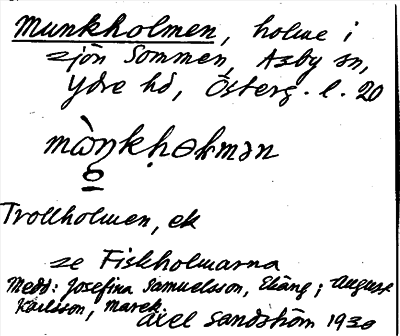 Munkholmen, holme i
sjön Sommen, Asby sn,
Ydre hd, Österg. l. 20
Trollholmen, ek
se Fiskholmarna
Medd: Josefina Samuelsson, Ekäng; August
Karlsson, Marek.
Axel Sandström 1930